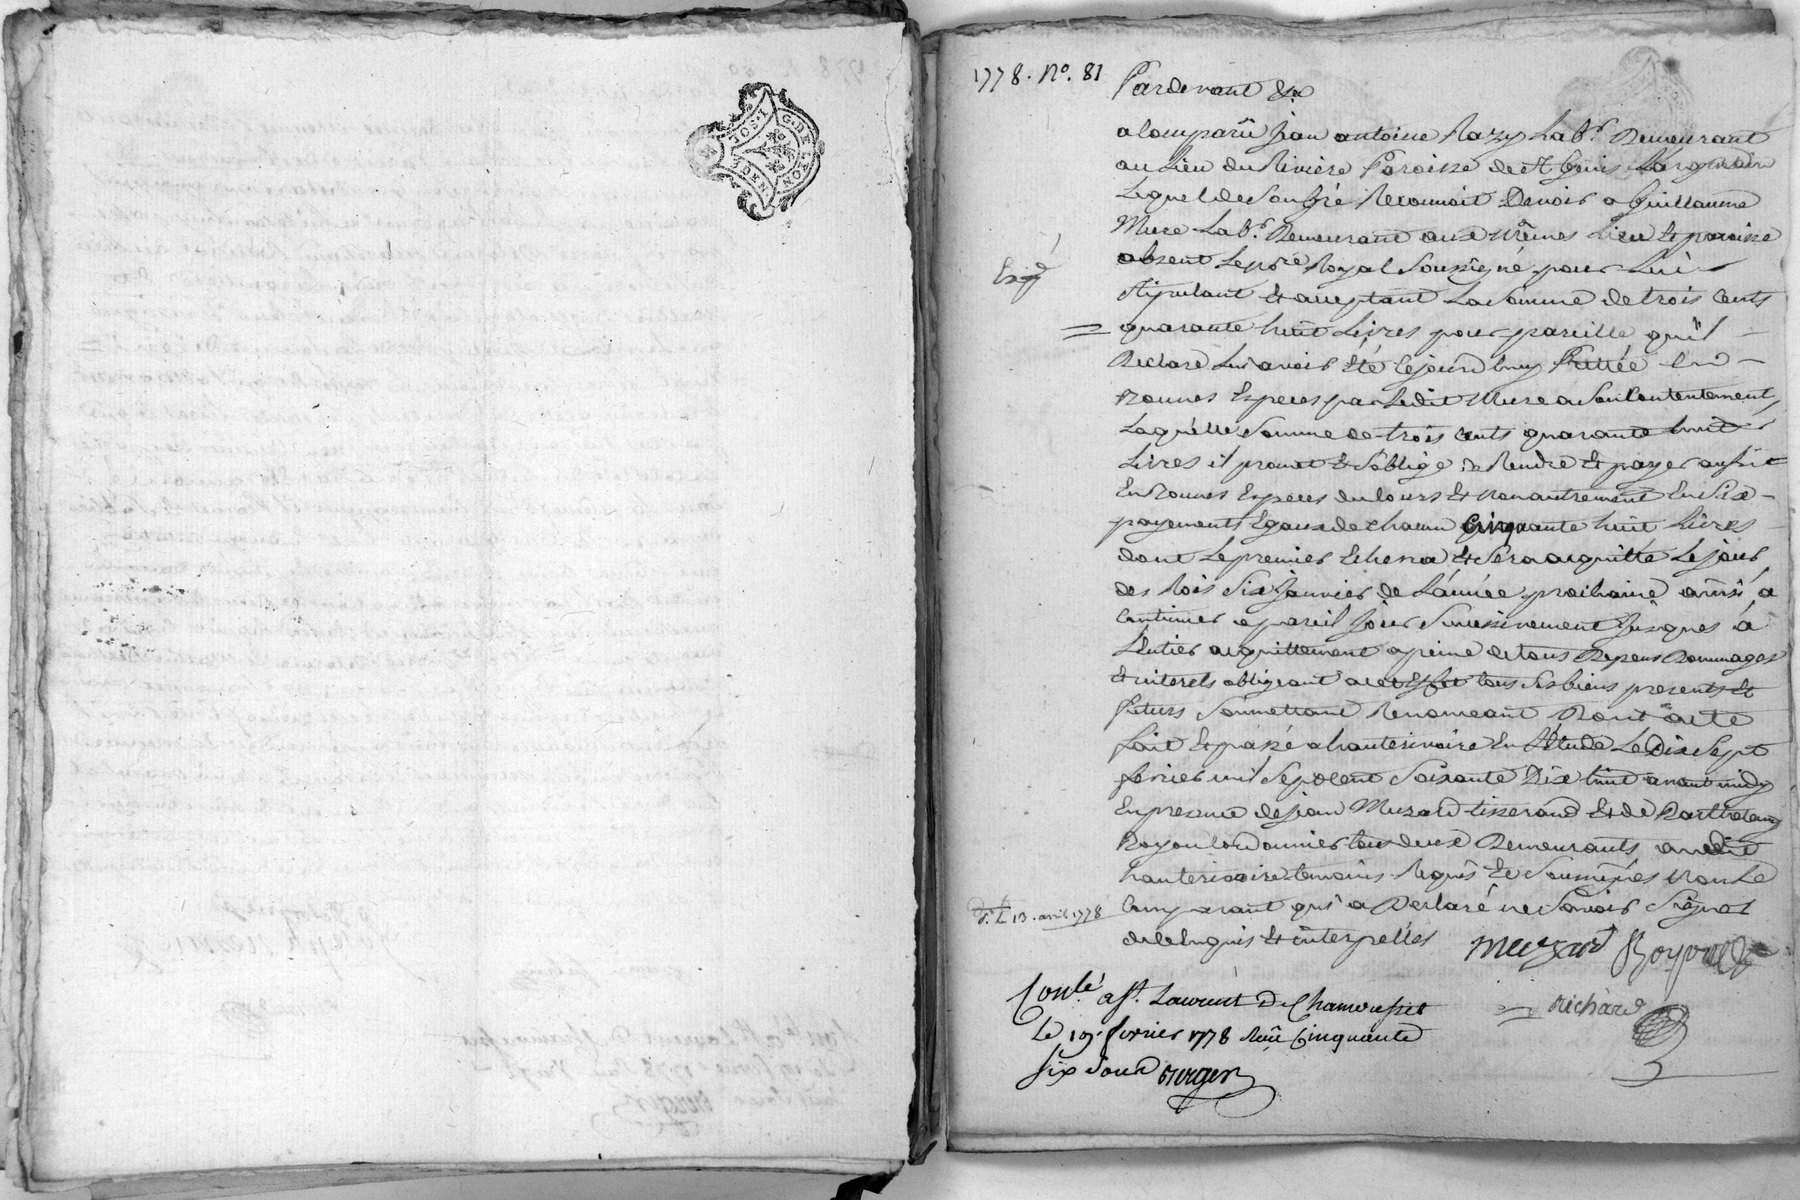 G. DE LYON
1778. No. 81
Pardevant &a
a Comparû jean antoine Nazy Labr. Demeurant
au Lieu du Riviére Paroisse de St Genis L'argentiere
Lequel de Son gré Reconnoit Devoir a Guillaume
Mure Labr. Demeurant aux mêmes Lieu et paroisse
absent Le nore Royal Soussigné pour Lui
Stipulant et acceptant La Somme de trois cents
quarante huit Livres pour pareille qu'il
Declare Lui avoir été cejourd'huy Prettée en
Bonnes Especes par Ledit Mure a Son Contentement
Laquelle Somme de trois cents quarante huit
Livres il promet et S'oblige de Rendre et payer aussi
En Bonnes Especes du Cours et non autrement En Six
payements Egaux de chacun Cinquante huit Livres
dont Le premier Echerra et Sera acquitté Le jour
des Rois Six Janvier de L'année prochaine ainsi a
Continuer a pareil Jour Successivement Jusques à
L'Entier acquittement a peine de tous Depens Dommages
et interets obligeant a cet Effet tous Ses biens presents et
futurs Soumettant Renonceant Dont acte
fait et passé a hauterivoire En L'Etude Le Dix Sept
fevrier mil Sept cent Soixante Dix huit avant midy
En presence de jean Muzard tisserand et de Barthelemy
Royon Cordonnier tous deux Demeurants audit
hauterivoire temoins Requis et Soussignés non Le
Comparant qui a Declaré ne Savoir Signer
de ce Enquis et interpellés
Exp é
D. L. 13. avril 1778
Muzard Royon
Richard
Conlé a St. Laurent De Chamousset
Le 19. fevrier 1778 Reçu Cinquante
Six Sous Berger